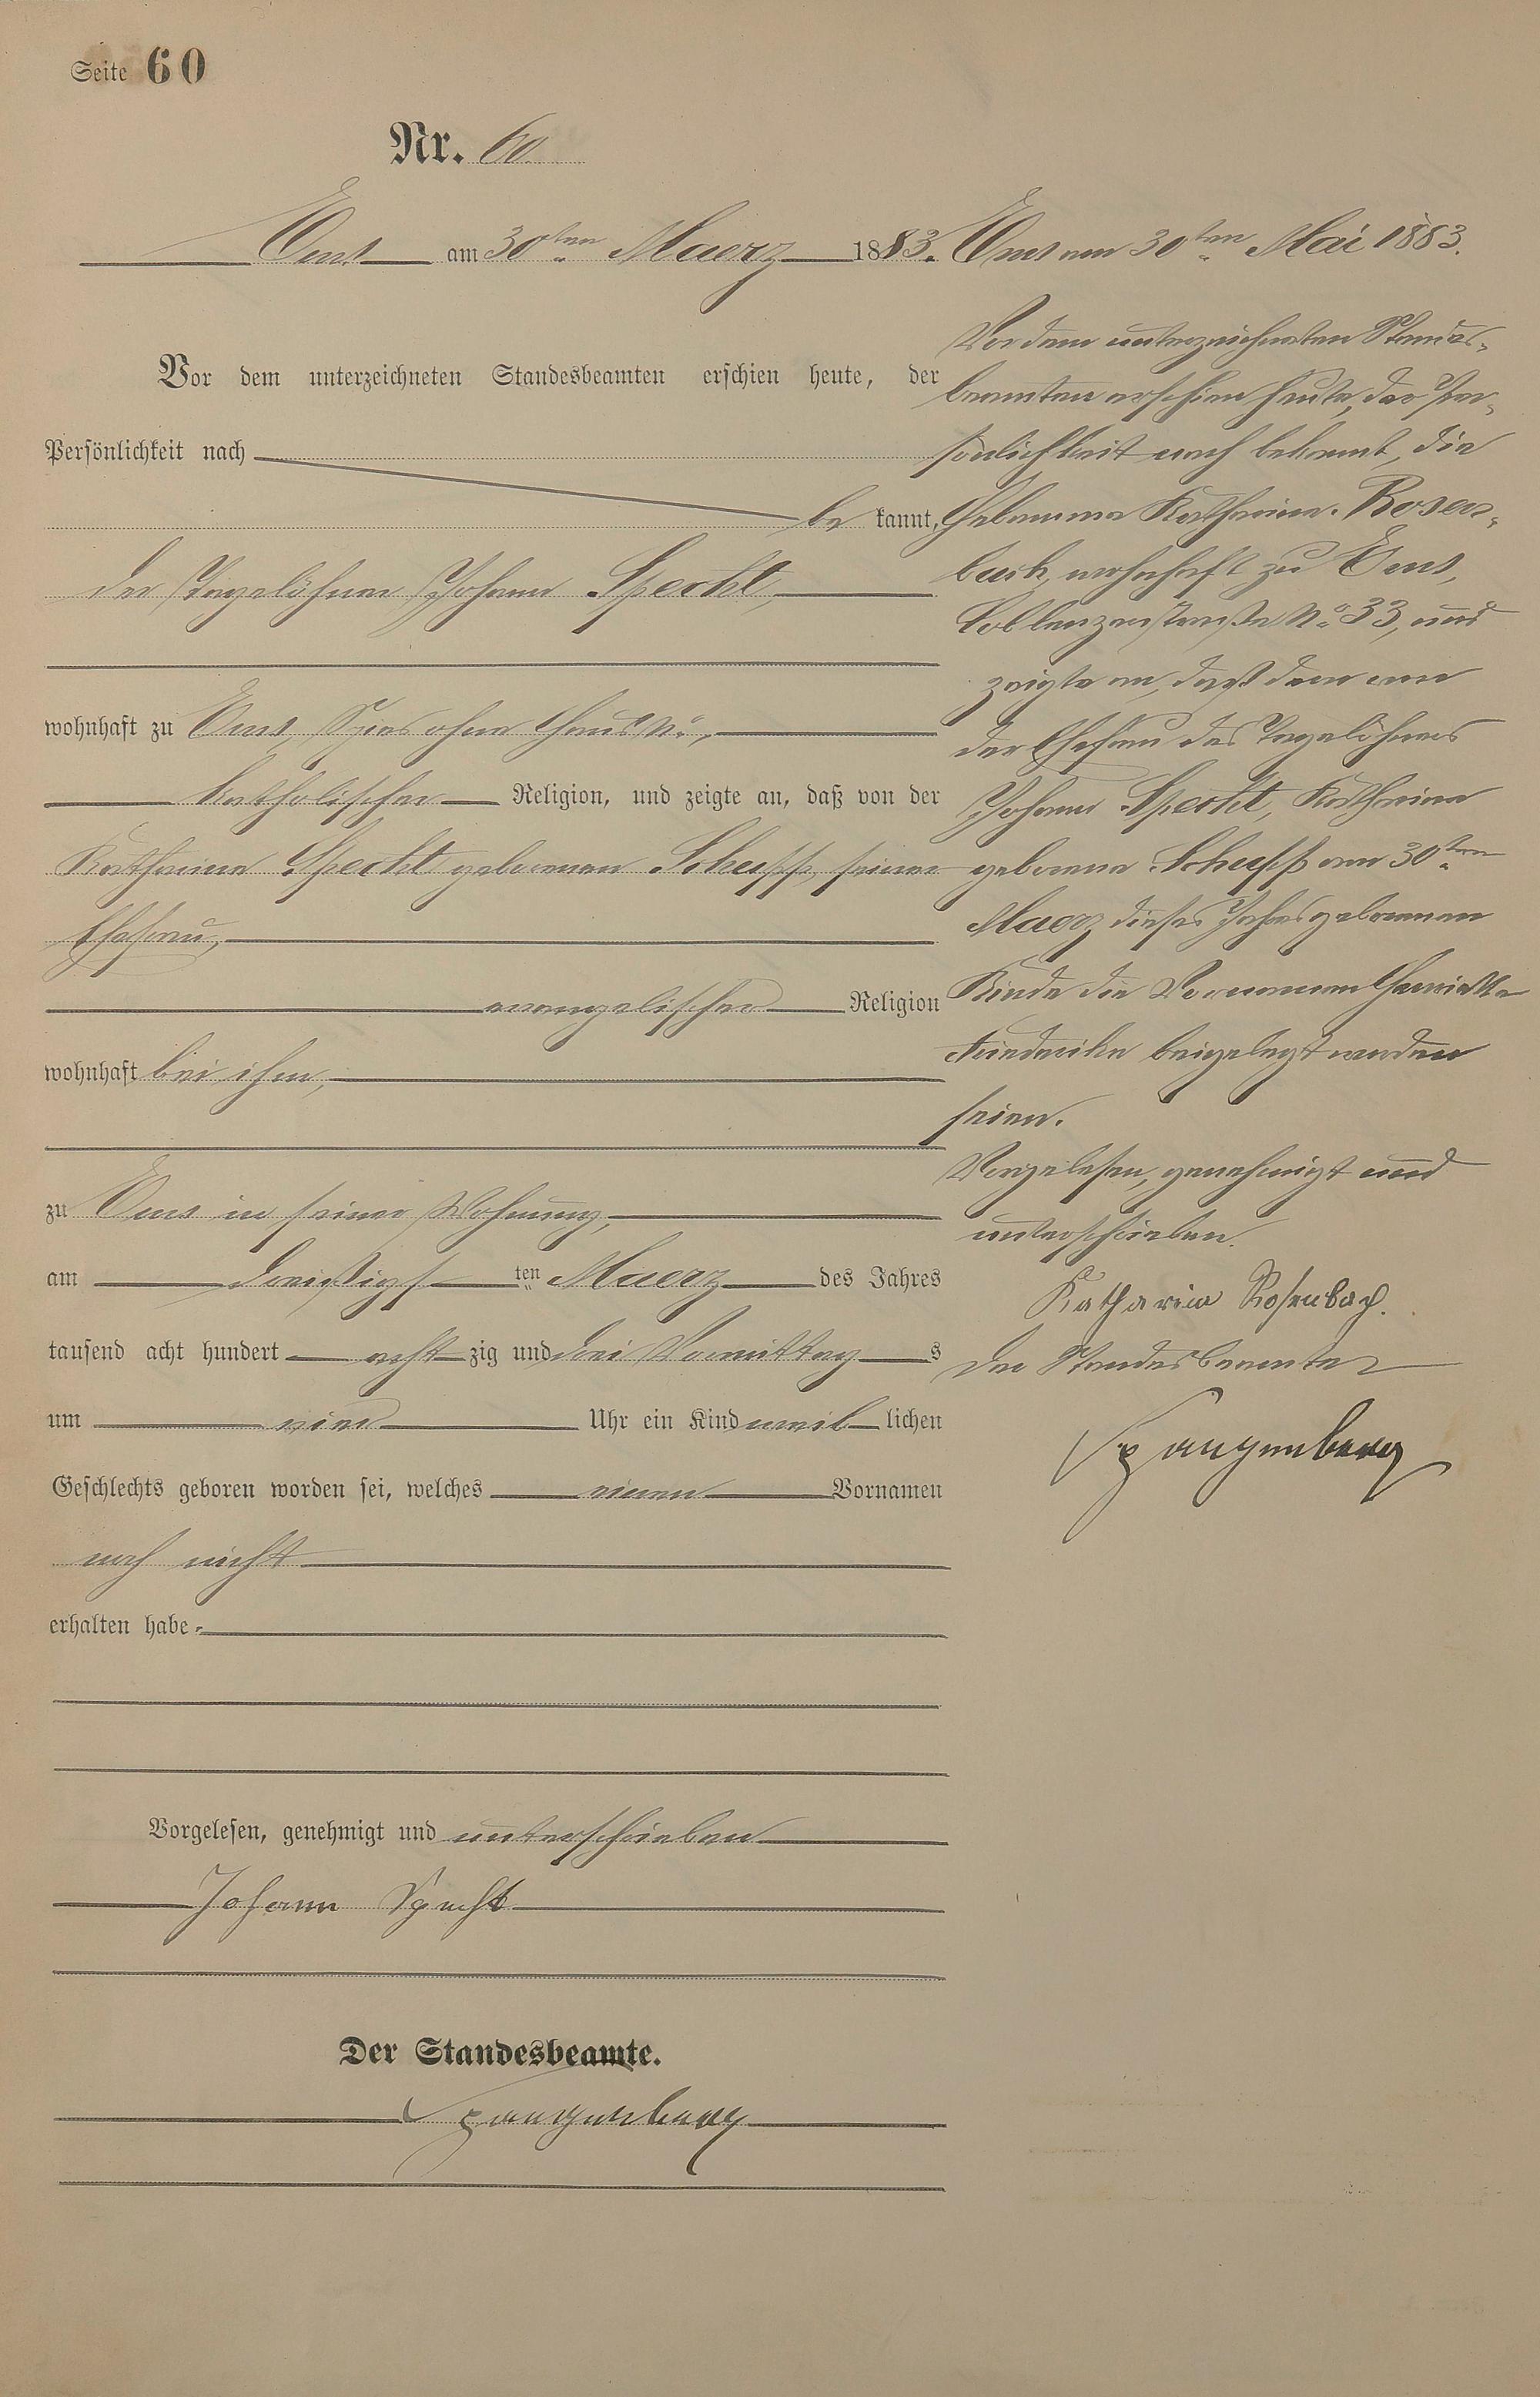 Seite 60
Nr. 60.
Ems am 30ten Maerz 1883.
Vor dem unterzeichneten Standesbeamten erschien heute, der
Persönlichkeit nach
be kannt,
der Tagelöhner Johann Specht,
wohnhaft zu Ems, Spies ohne Haus No,
katholischer Religion, und zeigte an, daß von der
Katharina Specht geborenen Schupp, seiner
Ehefrau,
evangelischer Religion
wohnhaft bei ihm,
zu Ems in seiner Wohnung,
am dreißigsten Maerz des Jahres
tausend acht hundert acht zig und drei Vormittags
um vier Uhr ein Kind weiblichen
Geschlechts geboren worden sei, welches einen Vornamen
noch nicht
erhalten habe.
Vorgelesen, genehmigt und unterschrieben
Johann Specht
Der Standesbeamte.
Spangenberg
Ems am 30ten Mai 1883.
Vor dem unterzeichneten Standes-
beamten erschien heute, der Per-
sönlichkeit nach bekannt, die
Hebamme Katharina Rosen-
bach, wohnhaft zu Ems,
Coblenzerstraße No 33, und
zeigte an, daß dem von
der Ehefrau des Tagelöhners
Johann Specht, Katharina
geborene Schupp am 30ten
Maerz dieses Jahres geborenen
Kinde die Vornamen Henriette
Friederike beigelegt worden
seien.
Vorgelesen, genehmigt und
unterschrieben.
Katharina Rosenbach.
Der Standesbeamte
Spangenberg